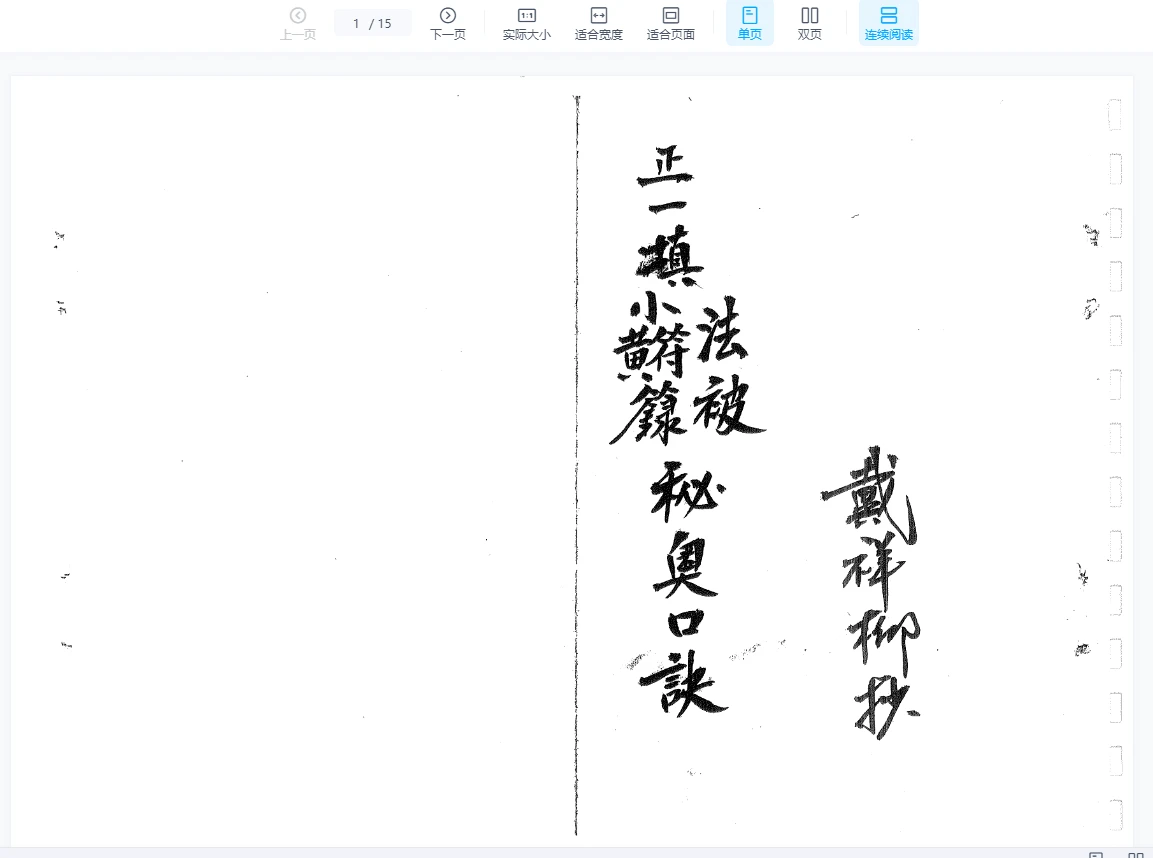 上一页
1 / 15
下一页
1:1
实际大小
适合宽度
适合页面
单页
双页
连续阅读
戴祥柳抄
法被
正一填小黄符籙秘奥口訣